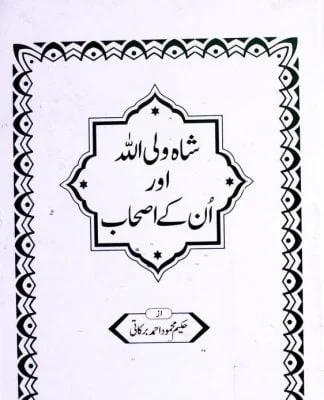 شاہ ولی اللہ
اور
اُن کے اصحاب
از
حکیم محمود احمد برکاتی